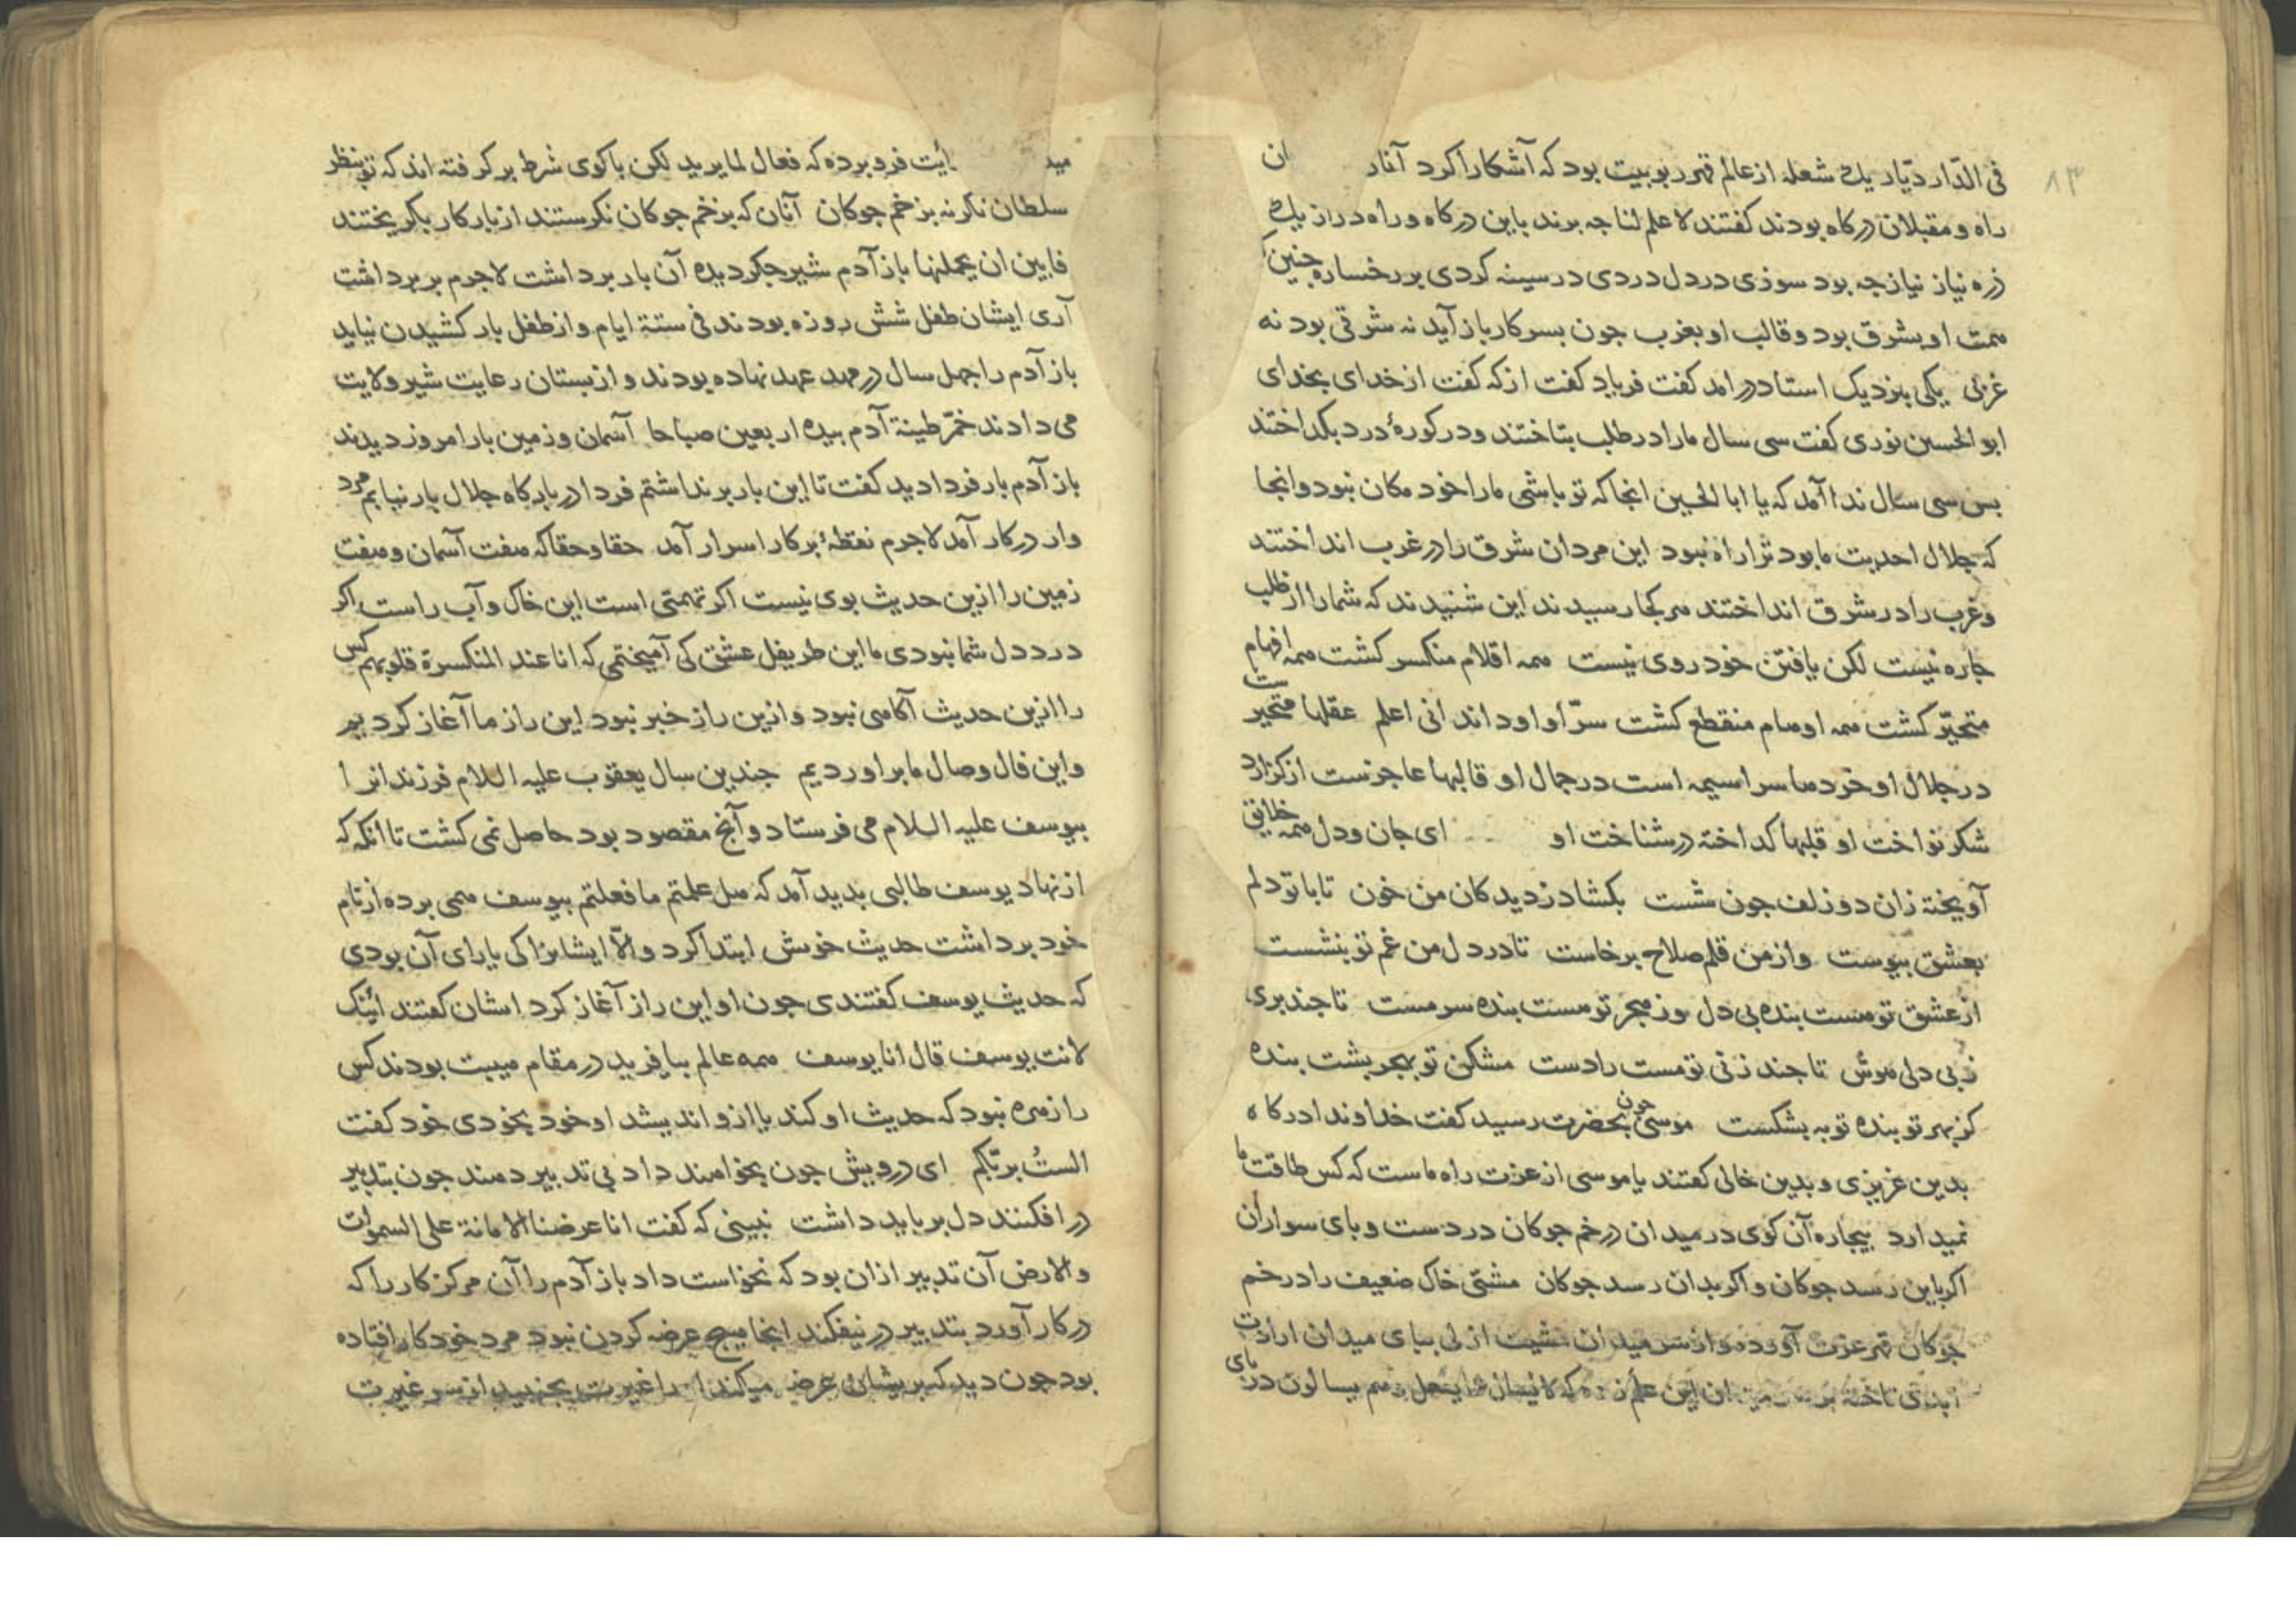 ۸۳
فی الدّار دیّار یک شعله از عالم قهر ربوبیت بود که آشکارا کرد آنان
راه و مقبلان درکاه بودند کفتند لا علم لنا جه برند باین درکاه و راه دراز یک
ذره نیاز نیاز جه بود سوزی در دل دردی در سینه کردی بر رخساره جنین
همت او بشرق بود و قالب او بغرب جون بسر کار باز آید نه شرقی بود نه
غربی یکی بنزدیک استاد درامد کفت فریاد کفت از که کفت از خدای بخدای
ابو الحسین نوری کفت سی سال مارا در طلب بتاختند و در کورهٔ درد بکداختند
بس سی سال ندا آمد که یا ابا الحسین انجا که تو باشی ما را خود مکان نبود و انجا
که جلال احدیت ما بود ترا راه نبود این مردان شرق را در غرب انداختند
و غرب را در شرق انداختند هر کجا رسیدند این شنیدند که شما را از طلب
جاره نیست لکن یافتن خود روی نیست همه اقلام منکسر کشت همه افهام
متحیّر کشت همه اوهام منقطع کشت سرّ او او داند انی اعلم عقلها متحیر ست
در جلال او خردها سراسیمه است در جمال او قالبها عاجزست از کزارد
شکر نواخت او قلبها کداخته در شناخت او ای جان و دل همه خلایق
آویخته زان دو زلف جون شست بکشاد ز دیدکان من خون تا با تو دلم
بعشق بیوست وز من قلم صلاح برخاست تا در دل من غم تو بنشست
از عشق تو مست بنده بی دل وز هجر تو مست بنده سرمست تا جند بری
ز بی دلی هوش تا جند زنی تو مست را دست مشکن تو بهجر بشت بنده
کز بهر تو بنده توبه بشکست موسی جون بحضرت رسید کفت خداوندا درکاه
بدین عزیزی و بدین خالی کفتند یا موسی از عزت راه ماست که کس طاقت ما
نمیدارد بیجاره آن کوی در میدان در خم جوکان در دست و بای سواران
اکر باین رسد جوکان و اکر بدان رسد جوکان مشتی خاک ضعیف را در خم
جوکان قهر عزت آورده و از سر میدان مشیت ازلی ببای میدان ارادت
ابدی تاخته بر سر میدان این علم زده که لا یسأل عما یفعل و هم یسألون در بای
مید ایت فرو برده که فعال لما یرید لکن با کوی شرط بر کرفته اند که تو بنظر
سلطان نکر نه بزخم جوکان آنان که بزخم جوکان نکرستند از بار کار بکریختند
فابین ان یحملنها باز آدم شیر جکر دیده آن بار برداشت لاجرم بر برداشت
آری ایشان طفل شش روزه بودند فی ستة ایام و از طفل بار کشیدن نیاید
باز آدم را جهل سال در مهد عهد نهاده بودند و از بستان رعایت شیر ولایت
می دادند خمّر طینة آدم بیده اربعین صباحا آسمان و زمین بار امروز دیدند
باز آدم بار فردا دید کفت تا این بار برنداشتم فردا در بارکاه جلال بار نیابم مرد
وار در کار آمد لاجرم نقطهٔ برکار اسرار آمد حقا و حقا که هفت آسمان و هفت
زمین را ازین حدیث بوی نیست اکر تهمتی است این خاک و آب راست اکر
درد دل شما نبودی ما این طریفل عشق کی آمیختمی که انا عند المنکسرة قلوبهم کس
را ازین حدیث آکاهی نبود و ازین راز خبر نبود این راز ما آغاز کردیم
و این فال وصال ما براوردیم جندین سال یعقوب علیه السلام فرزندانرا
بیوسف علیه السلام می فرستاد و آنج مقصود بود حاصل نمی کشت تا انکه که
از نهاد یوسف طالبی بدید آمد که هل علمتم ما فعلتم بیوسف همی برده از نام
خود برداشت حدیث خویش ابتدا کرد و الّا ایشانرا کی یارای آن بودی
که حدیث یوسف کفتندی جون او این راز آغاز کرد اشان کفتند ائنک
لانت یوسف قال انا یوسف همه عالم بیافرید در مقام هیبت بودند کس
را زهره نبود که حدیث او کند یا ازو اندیشد او خود بخودی خود کفت
الستُ بربّکم ای درویش جون بخواهند داد بی تدبیر دهند جون بتدبیر
در افکنند دل بر باید داشت نبینی که کفت انا عرضنا الامانة علی السموات
والارض آن تدبیر ازان بود که نخواست داد باز آدم را آن مرکز کار را که
در کار آورد بتدبیر در نیفکند اینجا هیج عرضه کردن نبود مرد خود کار افتاده
بود جون دید که بریشان عرضه میکند او را غیرت بجنبید از سر غیرت